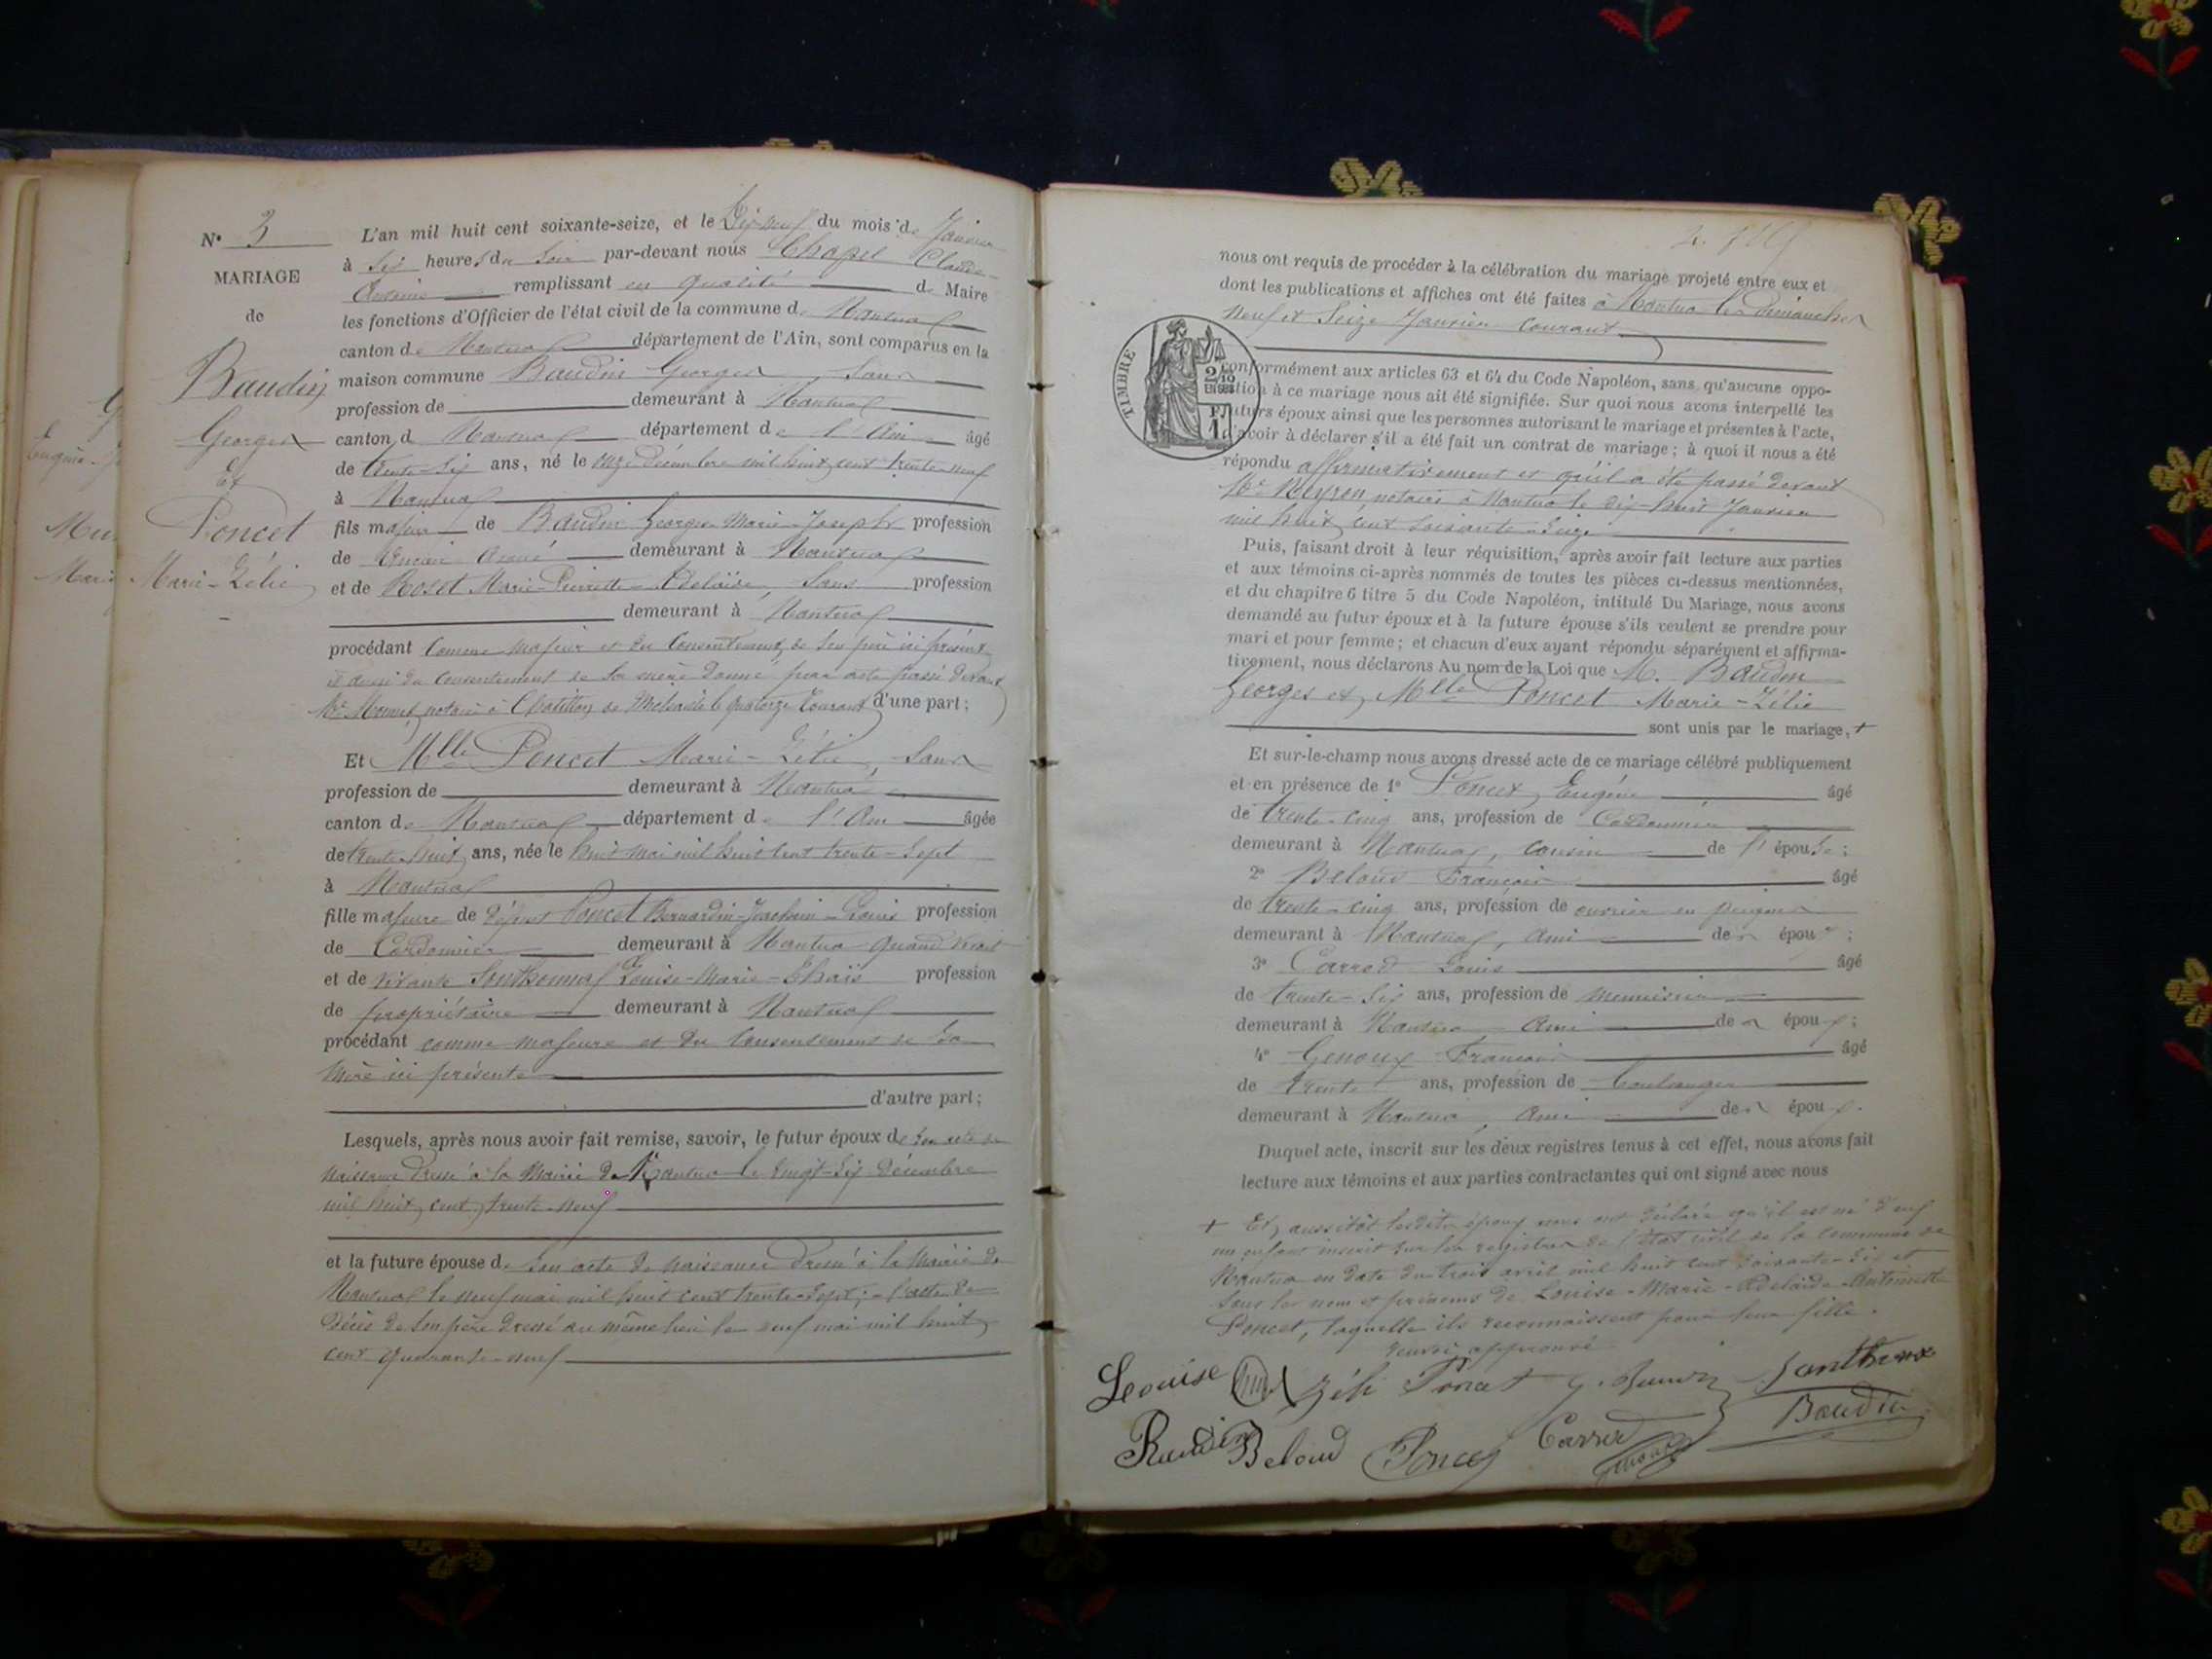 N° 3
MARIAGE
de
Baudin
Georges
Et
Poncet
Marie-Zélie
L'an mil huit cent soixante-seize, et le Dix-neuf du mois de Janvier
à Six heures du Soir par-devant nous Chapel Claude-
Antoine remplissant en qualité de Maire
les fonctions d'Officier de l'état civil de la commune de Nantua
canton de Nantua département de l'Ain, sont comparus en la
maison commune Baudin Georges Sans
profession de demeurant à Nantua
canton de Nantua département de l'Ain âgé
de trente-Six ans, né le onze Décembre mil huit cent trente-neuf
à Nantua
fils majeur de Baudin Georges Marie-Joseph profession
de demeurant à Nantua
et de Rosot Marie-Pierrette-Adelaïde, Sans profession
demeurant à Nantua
procédant comme majeur et du Consentement de Son père ici présent
et aussi du consentement de Sa mère Donné par acte passé devant
Me notaire à Chatillon de Michaille le quatorze Courant d'une part;
Et Mlle Poncet Marie-Zélie, Sans
profession de demeurant à Nantua
canton de Nantua département de l'Ain âgée
de trente-huit ans, née le huit mai mil huit cent trente-Sept
à Nantua
fille majeure de défunt Poncet Bernardin-Joachim-Louis profession
de Cordonnier demeurant à Nantua quand vivait
et de vivante Sonthonnax Louise-Marie-Thaïs profession
de propriétaire demeurant à Nantua
procédant comme majeure et du Consentement de Sa
Mère ici présente
d'autre part;
Lesquels, après nous avoir fait remise, savoir, le futur époux de Son acte de
naissance Dressé à la Mairie de Nantua le vingt-Six Décembre
mil huit cent trente-neuf
et la future épouse de Son acte de naissance dressé à la Mairie de
Nantua le neuf mai mil huit cent trente-Sept; l'acte de
Décès de Son père dressé au même lieu le neuf mai mil huit
cent quarante-neuf
nous ont requis de procéder à la célébration du mariage projeté entre eux et
dont les publications et affiches ont été faites à Nantua les Dimanches
neuf et Seize Janvier courant
TIMBRE
2/10
EN SUS
conformément aux articles 63 et 64 du Code Napoléon, sans qu'aucune oppo-
sition à ce mariage nous ait été signifiée. Sur quoi nous avons interpellé les
futurs époux ainsi que les personnes autorisant le mariage et présentes à l'acte,
d'avoir à déclarer s'il a été fait un contrat de mariage; à quoi il nous a été
répondu affirmativement et qu'il a été passé devant
Me Neyron notaire à Nantua le dix-huit Janvier
mil huit cent soixante-Seize
Puis, faisant droit à leur réquisition, après avoir fait lecture aux parties
et aux témoins ci-après nommés de toutes les pièces ci-dessus mentionnées,
et du chapitre 6 titre 5 du Code Napoléon, intitulé Du Mariage, nous avons
demandé au futur époux et à la future épouse s'ils veulent se prendre pour
mari et pour femme; et chacun d'eux ayant répondu séparément et affirma-
tivement, nous déclarons Au nom de la Loi que M. Baudin
Georges et Mlle Poncet Marie-Zélie
sont unis par le mariage, +
Et sur-le-champ nous avons dressé acte de ce mariage célébré publiquement
et en présence de 1° Poncet Eugène âgé
de trente-cinq ans, profession de Cordonnier
demeurant à Nantua, cousin de l'épouse;
2° Beloud François âgé
de trente-cinq ans, profession de ouvrier en peignes
demeurant à Nantua, ami des époux;
3° Carred Louis âgé
de trente-Six ans, profession de menuisier
demeurant à Nantua Ami des époux;
4° Genoux François âgé
de trente ans, profession de boulanger
demeurant à Nantua, Ami des époux.
Duquel acte, inscrit sur les deux registres tenus à cet effet, nous avons fait
lecture aux témoins et aux parties contractantes qui ont signé avec nous
+ Et aussitôt lesdits époux nous ont déclaré qu'il est né d'eux
un enfant inscrit sur les registres de l'état civil de la commune de
Nantua en date du trois avril mil huit cent soixante-Six et
Sous les nom et prénoms de Louise-Marie-Adelaïde-Antoinette
Poncet, laquelle ils reconnaissent pour leur fille.
renvoi approuvé
Louise Zélie Poncet Sonthonax
Baudin Beloud Poncet Carred Baudin